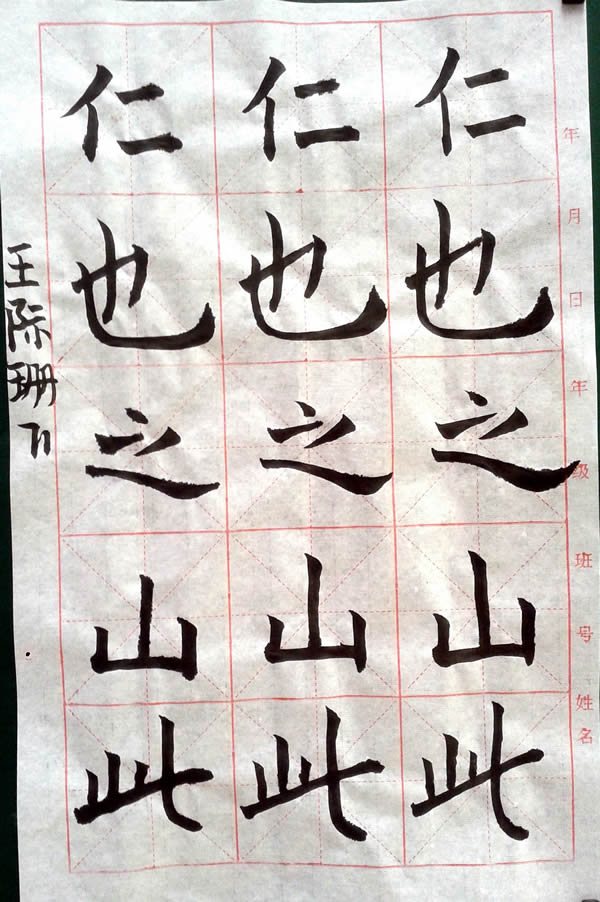 年月日年级班号姓名
仁也之山此
仁也之山此
仁也之山此
王际珊 71